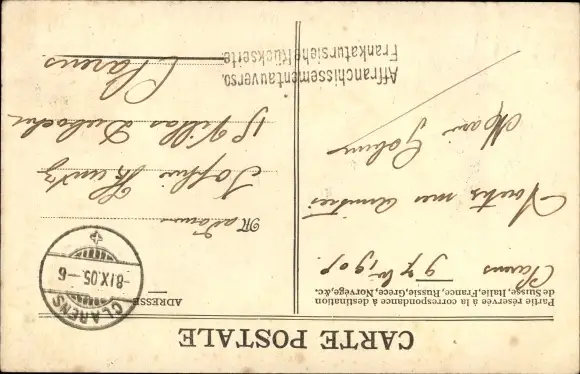 CARTE POSTALE
Partie réservée à la correspondance à destination
de Suisse, Italie, France, Russie, Grèce, Norvège, &c.
Clarens
1905
Toutes mes amitiés
ADRESSE
CLARENS
-8.IX.05.-6
Madame
Sophie
Villas Dubochet
Clarens
Affranchissement au verso.
Frankatur siehe Rückseite.